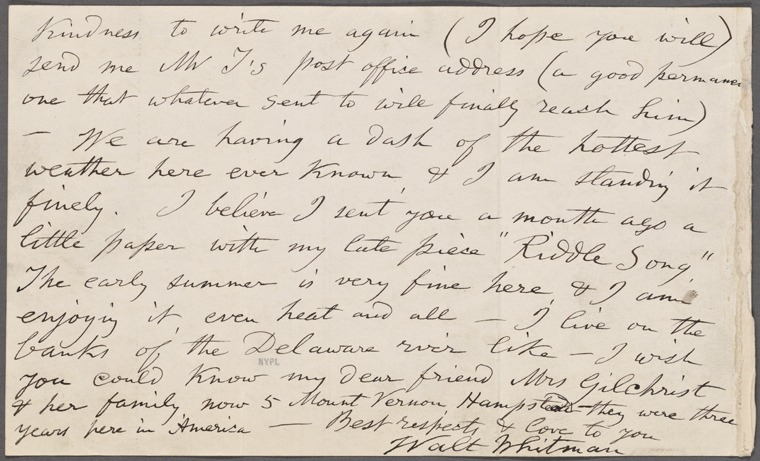 kindness to write me again (I hope you will)
send me Mr T's post office address (a good permanen
one that whatever sent to will finally reach him)
— We are having a dash of the hottest
weather here ever known, & I am standing it
finely. I believe I sent you a month ago a
little paper with my late piece "Riddle Song"
The early summer is very fine here, & I am
enjoying it even heat and all — I live on the
banks of the Delaware river like — I wish
you could know my dear friend Mrs Gilchrist
& her family now 5 Mount Vernon Hampstead — they were three
years here in America — Best respects & love to you
Walt Whitman
NYPL